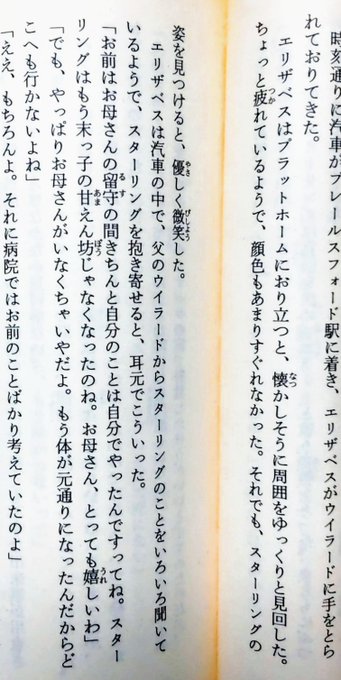 時刻通りに汽車がブレールスフォード駅に着き、エリザベスがウイラードに手をとら
れておりてきた。
エリザベスはプラットホームにおり立つと、懐かしそうに周囲をゆっくりと見回した。
ちょっと疲れているようで、顔色もあまりすぐれなかった。それでも、スターリングの
姿を見つけると、優しく微笑した。
エリザベスは汽車の中で、父のウイラードからスターリングのことをいろいろ聞いて
いるようで、スターリングを抱き寄せると、耳元でこういった。
「お前はお母さんの留守の間きちんと自分のことは自分でやったんですってね。スター
リングはもう末っ子の甘えん坊じゃなくなったのね。お母さん、とっても嬉しいわ」
「でも、やっぱりお母さんがいなくちゃいやだよ。もう体が元通りになったんだからど
こへも行かないよね」
「ええ、もちろんよ。それに病院ではお前のことばかり考えていたのよ」